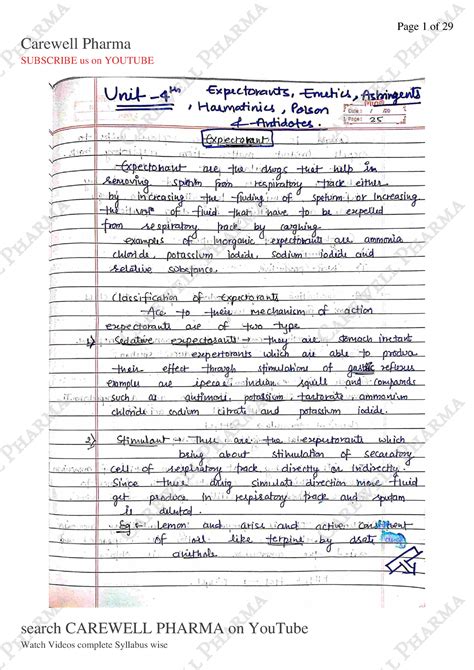 Page 1 of 29
Carewell Pharma
SUBSCRIBE us on YOUTUBE
Unit - 4th Expectorants, Emetics, Astringents
, Haematinics, Poison
& Antidotes.
Page: 25
Expectorant
Expectorant are the drugs that help in
removing sputm from respiratory track either
by increasing the fluding of sputum or Increasing
the of fluid that have to be expelled
from respiratory track by caughing
examples of Inorganic expectorants are ammonia
chloride, potassium iodide, sodium iodide and
relative substance.
Classification of expectorants
Acc to their mechanism of action
expectorants are of two type
1) Sedative expectorants → they are stomach
expectorants which are able to produce
their effect through stimulations of gastric reflexes
examples are ipecac, Indian squill and compounds
such as antimony, potassium, ammonium
chloride sodium citrate and potassium iodide.
2) Stimulant → These are the expectorants which
bring about stimulation of
cell of respiratory track directly or Indirectly.
Since these drug direction more fluid
get produce in respiratory track and
is diluted.
Eg: Lemon and and active
of oil like terpine by
anethole
search CAREWELL PHARMA on YouTube
Watch Videos complete Syllabus wise